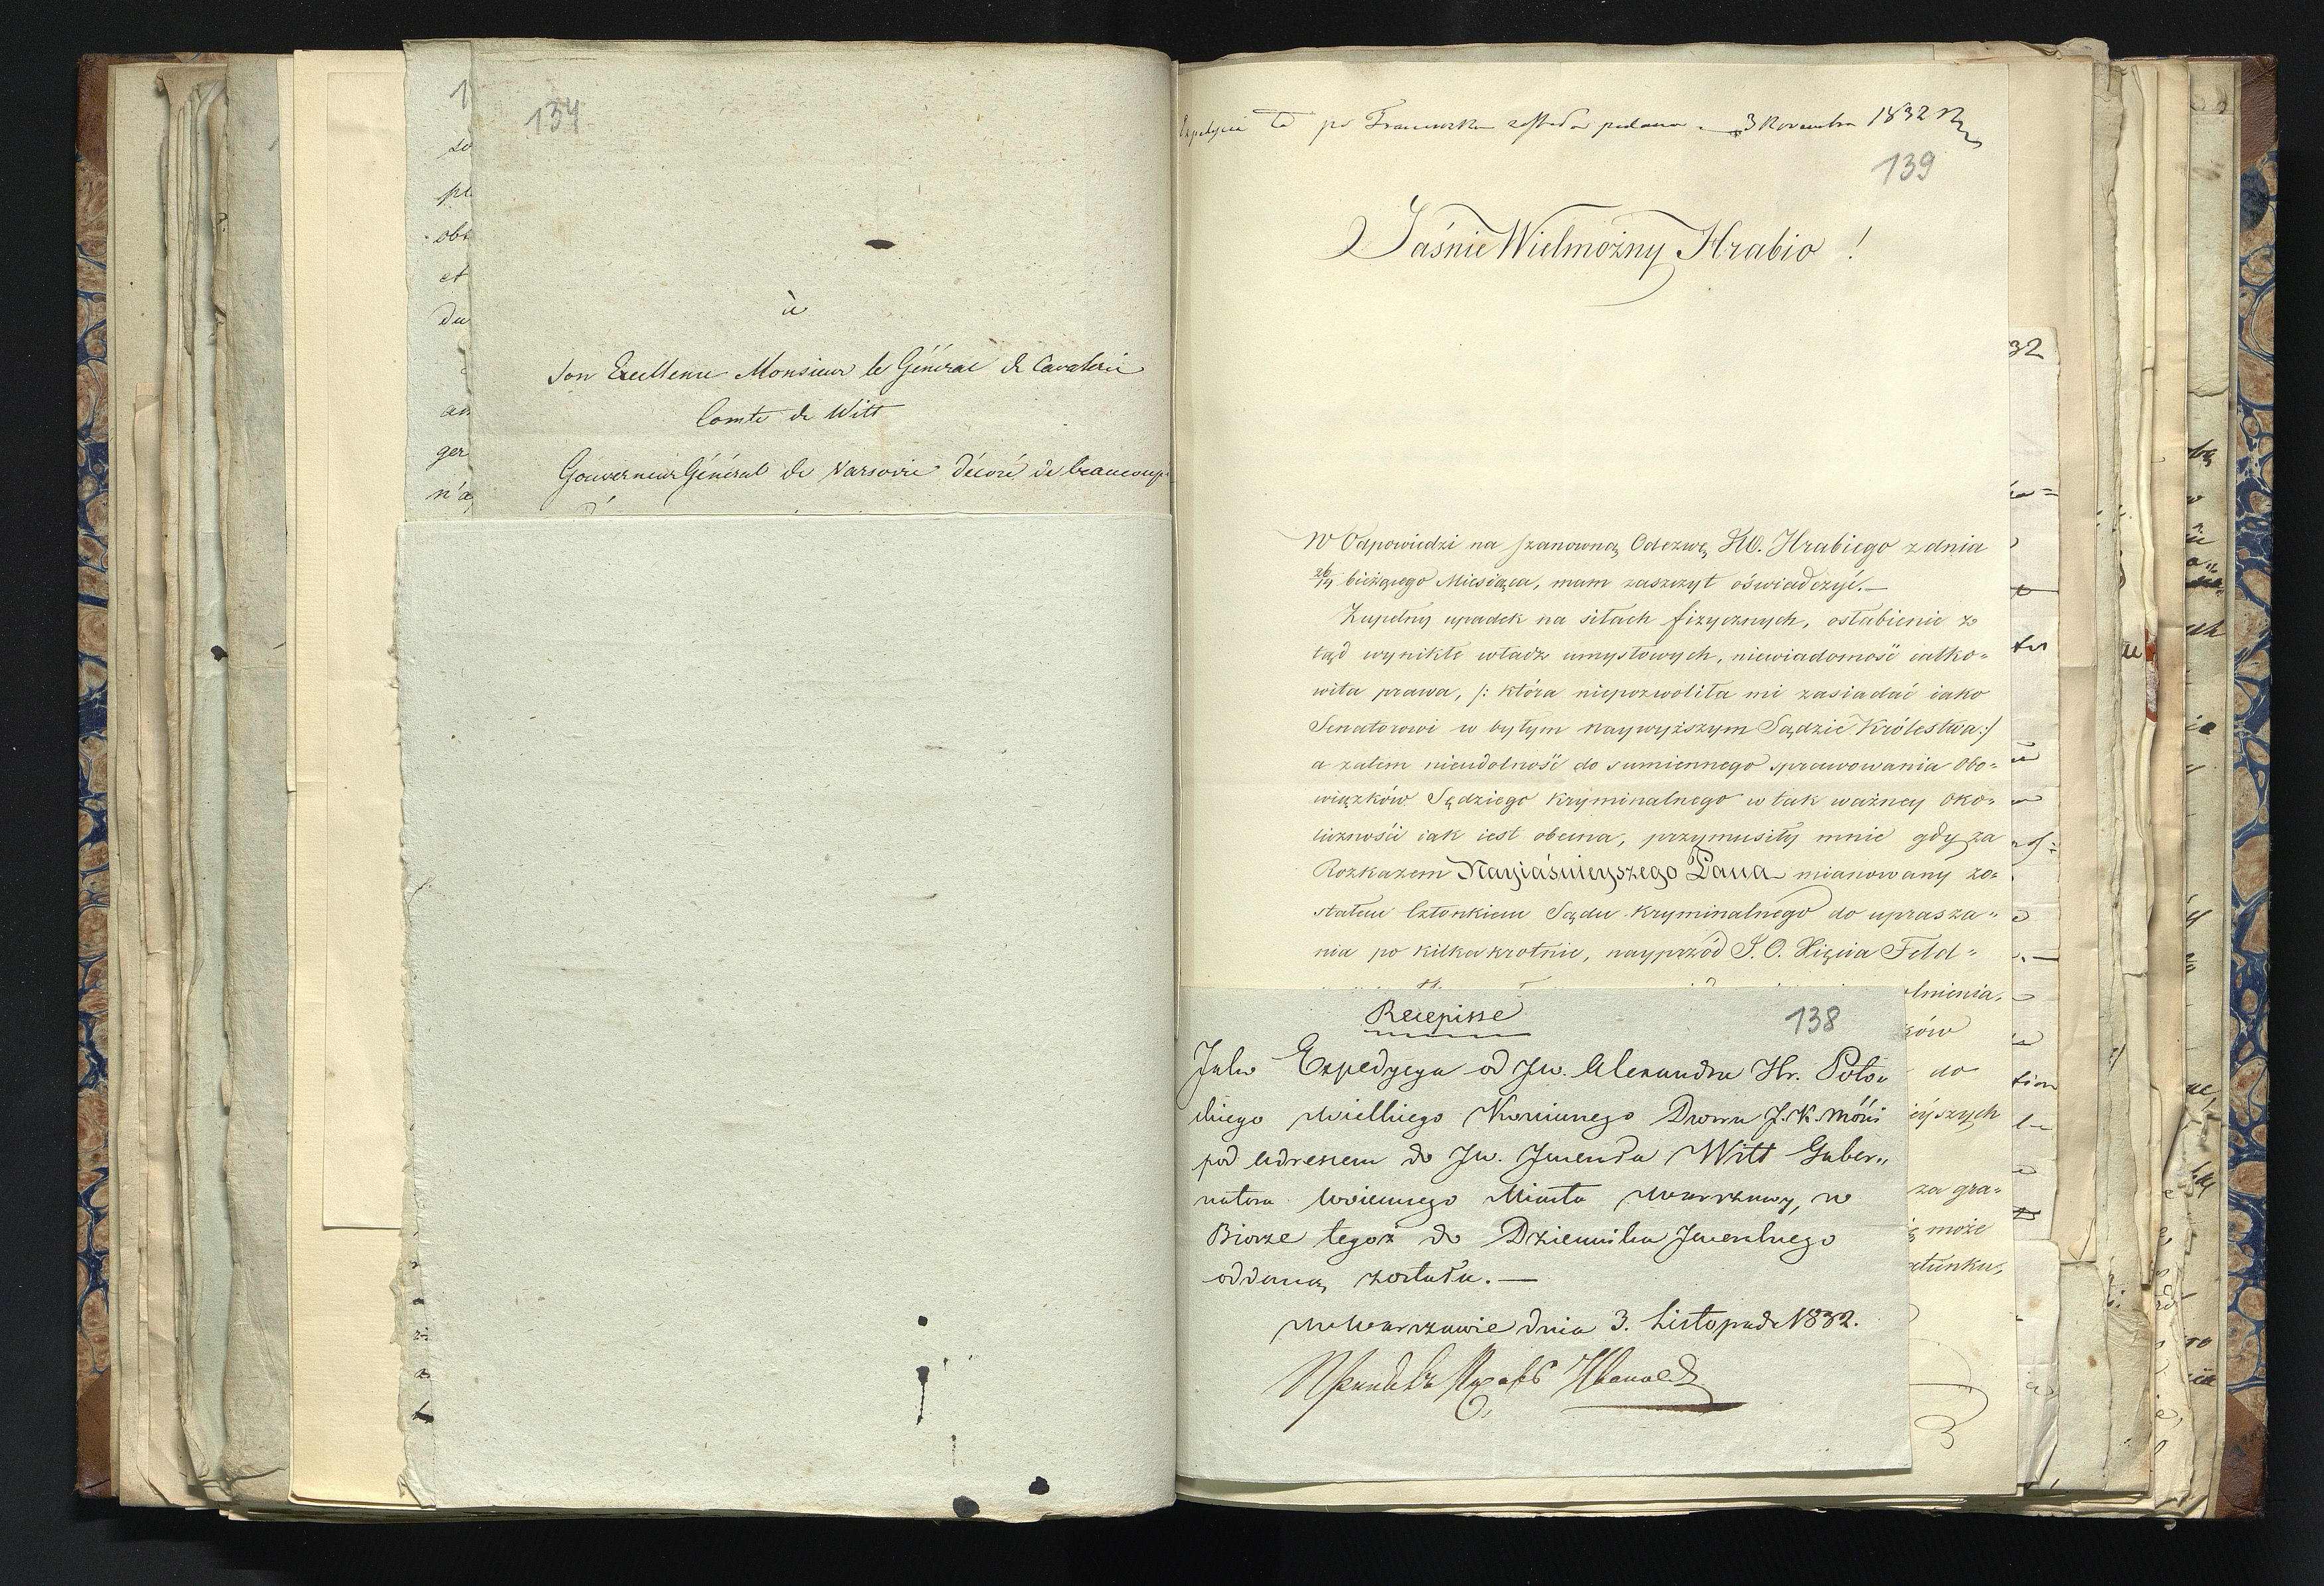 134
à
Son Excellence Monsieur le Général de Cavalerie
Comte de Witt
Gouverneur Général de Varsovie décoré de beaucoup
1
so
pl
obs
et
du
ger
n'a
ta po Francuzku została podana 3 Novembra 1832
139
Jaśnie Wielmożny Hrabio !
W Odpowiedzi na szanowną Odezwę JW. Hrabiego z dnia
bieżącego Miesiąca, mam zaszczyt oświadczyć.—
Zupełny upadek na siłach fizycznych, osłabienie z
tąd wynikłe władz umysłowych, niewiadomość całko=
wita prawa, /: która niepozwoliła mi zasiadać iako
Senatorowi w byłym Naywyższym Sądzie Królestwa :/
a zatem nieudolność do sumiennego sprawowania Obo=
wiązków Sędziego Kryminalnego w tak ważney Oko=
liczności iak iest obecna, przymusiły mnie gdy za
Rozkazem Nayiaśnieyszego Pana mianowany zo=
stałem Członkiem Sądu Kryminalnego do uprasza=
nia po kilkakrotnie, nayprzód J. O. Xięcia Feld=
lnienia,
ków
do
ieyszych
za gra=
może
atunku,
Recepisse
138
Jako Expedycya od Jw. Alexandra Hr. Poto=
ckiego Wielkiego Koniuszego Dworu J. K. Mości
pod Adressem do Jw. Jenerała Witt Guber=
natora Woiennego Miasta Warszawy, w
Biorze tegoż do Dziennika Jeneralnego
oddaną została.—
w Warszawie dnia 3. Listopada 1832.
32